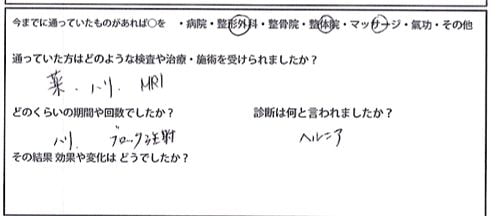 今までに通っていたものがあれば○を ・病院・整形外科・整骨院・整体院・マッサージ・氣功・その他
通っていた方はどのような検査や治療・施術を受けられましたか？
薬、ハリ、MRI
どのくらいの期間や回数でしたか？ 診断は何と言われましたか？
ハリ ブロック注射 ヘルニア
その結果 効果や変化は どうでしたか？